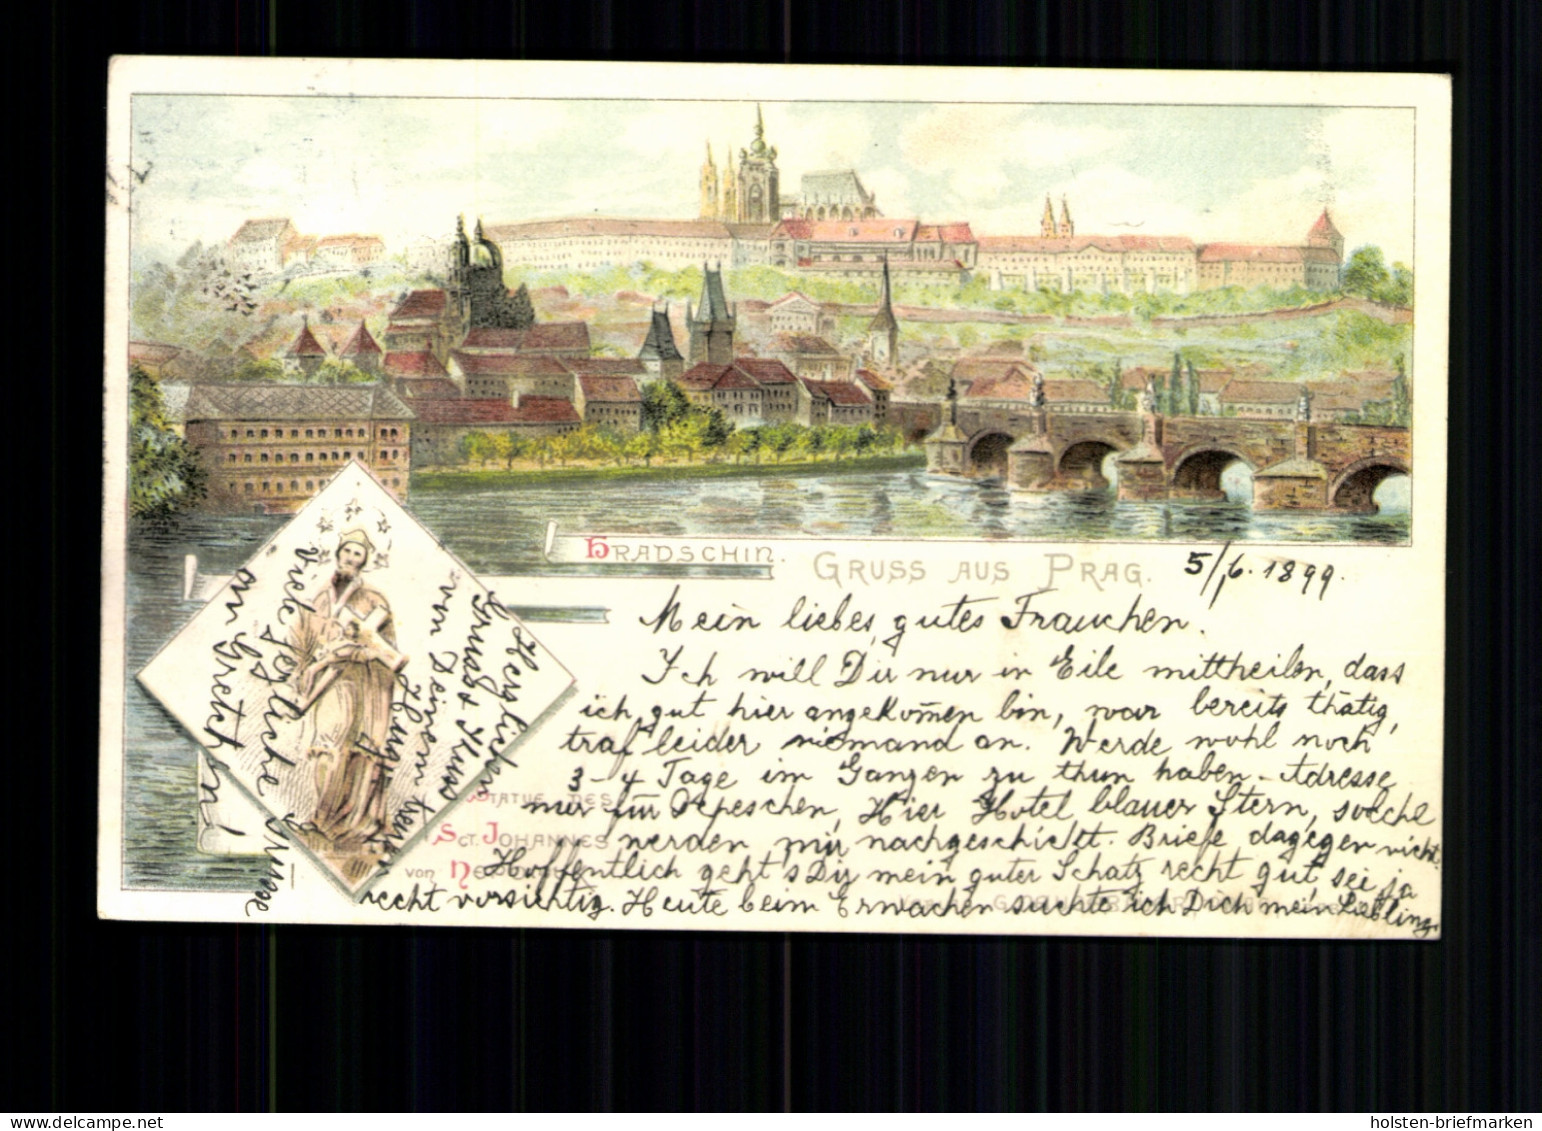 HRADSCHIN.
GRUSS AUS PRAG.
5/6. 1899.
Mein liebes, gutes Frauchen.
Ich will Dir nur in Eile mittheilen, dass
ich gut hier angekom̄en bin, war bereits thätig,
traf leider niemand an. Werde wohl noch
3-4 Tage im Ganzen zu thun haben. Adresse
nur für Depeschen, Hier Hotel blauer Stern, solche
werden mir nachgeschickt. Briefe dagegen nicht.
Hoffentlich geht's Dir mein guter Schatz recht gut, sei ja
recht vorsichtig. Heute beim Erwachen suchte ich Dich mein Liebling.
Herzlichen
Gruss & Kuss
von Deinem treuen
Viele herzliche Grüsse
an Gretchen!
STATUE DES
SCT. JOHANNES
VON
holsten-briefmarken